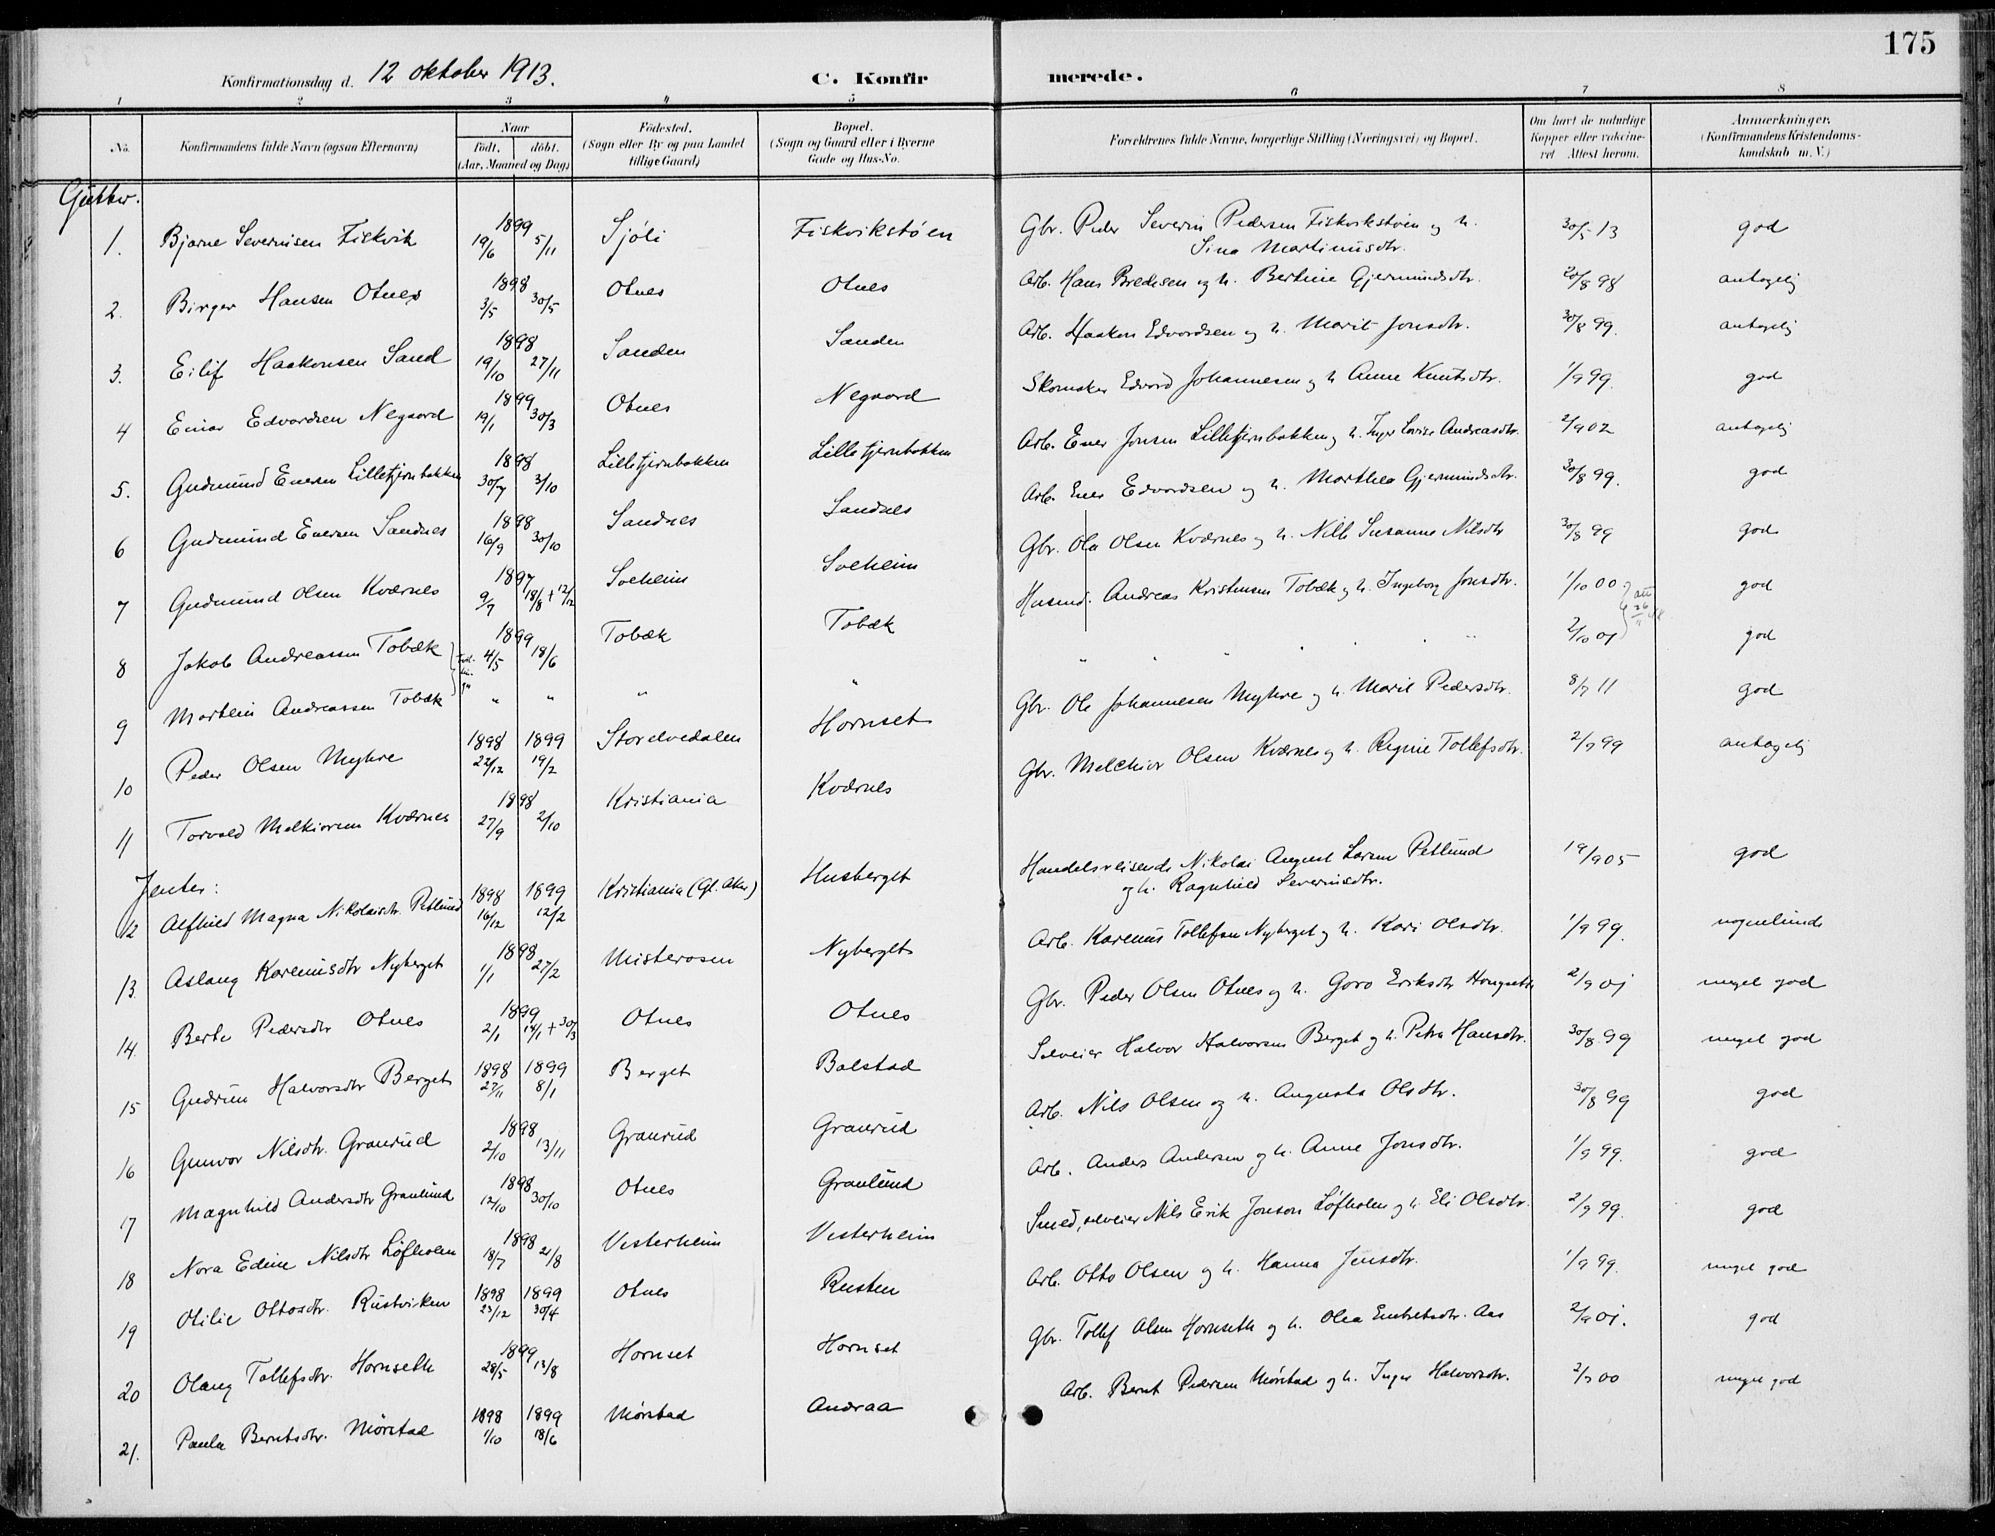 175
Konfirmationsdag d. 12 oktober 1913. C. Konfir merede.
1 2 3 4 5 6 7 8
No. Konfirmandens fulde Navn (ogsaa Efternavn) Naar født, døbt. (Aar, Maaned og Dag) Fødested. (Sogn eller By og paa Landet tillige Gaard) Bopæl. (Sogn og Gaard eller i Byerne Gade og Hus-No. Forældrenes fulde Navne, borgerlige Stilling (Næringsvei) og Bopæl. Om havt de naturlige Kopper eller vakcineret Attest herom. Anmerkninger. (Konfirmandens Kristendomskundskab m. V.)
Gutter.
1. Bjarne Severinsen Fiskvik 1899 19/6 5/11 Sjøli Fiskvikstøen Gbr. Peder Severin Pedersen Fiskvikstøen og h. Sina Martinusdtr. 30/5 13 god
2. Birger Hansen Otnes 1898 3/5 30/5 Otnes Otnes Arb. Hans Bredesen og h. Bertine Gjermundsdtr. 20/8 98 antagelig
3. Eilif Haakonsen Sand 1898 19/10 27/11 Sanden Sanden Arb. Haakon Edvardsen og h. Marit Jonsdtr. 30/8 99. antagelig
4 Einar Edvardsen Negaard 1899 19/1 30/3 Otnes Negaard Skomaker Edvard Johannesen og h Anne Knutsdtr. 1/9 99. god
5. Gudmund Enersen Lilletjernbakken 1898 30/7 3/10 Lilletjernbakken Lilletjernbakken Arb. Ener Jonsen Lilletjernbakken og h. Inger Lovise Andreasdtr. 2/9 02 antagelig
6 Gudmund Enersen Sandnes 1898 16/9 30/10 Sandnes Sandnes Arb. Ener Edvardsen og h. Marthea Gjermundsdtr. 30/8 99. god
7 Gudmund Olsen Kværnes 1897 9/7 18/8 + 12/12 Solheim Solheim Gbr. Ola Olsen Kværnes og h. Nille Susanne Nilsdtr 30/8 99 god
8 Jakob Andreassen Tobæk 1899 4/5 18/6 Tobæk Tobæk Husmd. Andreas Kristensen Tobæk og h. Ingeborg Jonsdtr. 1/10 00 god
9 Martein Andreassen Tobæk " " " " " " " 2/10 01 god
10 Peder Olsen Myhre 1898 22/12 1899 19/2 Storelvedalen Hornset Gbr. Ole Johannesen Myhre og h. Marit Pedersdtr. 8/7 11 god
11 Torvald Melkiorsen Kværnes 1898 27/9 2/10 Kristiania Kværnes Gbr. Melchior Olsen Kværnes og h. Regine Tollefsdtr. 2/9 99 antagelig
Jenter:
12 Alfhild Magna Nikolaisdtr. Petlund 1898 16/12 1899 12/2 Kristiania (Gl. Aker) Husberget Handelsreisende Nikolai August Larsen Petlund og h. Ragnhild Severinsdtr. 19/9 05 god
13. Aslaug Kareniusdtr Nyberget 1898 1/1 27/2 Misterosen Nyberget Arb. Karenius Tollefsen Nyberget og h. Kari Olsdtr. 1/9 99. nogenlunde
14. Berte Pedersdtr Otnes 1899 2/1 14/1 + 30/3 Otnes Otnes Gbr. Peder Olsen Otnes og h. Goro Eriksdtr Hornseth 2/9 01 meget god
15 Gudrun Halvorsdtr Berget 1898 27/11 1899 8/1 Berget Bolstad Selveier Halvor Halvorsen Berget og h. Petra Hansdtr. 30/8 99 meget god
16 Gunvor Nilsdtr. Granrud 1898 2/10 13/11 Granrud Granrud Arb. Nils Olsen og h. Augusta Olsdtr. 30/8 99 god
17 Magnhild Andersdtr Granlund 1898 12/10 30/10 Otnes Granlund Arb. Anders Andersen og h. Anne Jonsdtr. 1/9 99. god
18 Nora Edine Nilsdtr Løfholen 1898 18/7 21/8 Vesterheim Vesterheim Smed, selveier Nils Erik Jonson Løfholen og h. Eli Olsdtr. 2/9 99. god
19 Otilie Ottosdtr. Rustviken 1898 23/12 1899 30/4 Otnes Rusten Arb. Otto Olsen og h. Hanna Jensdtr. 1/9 99. meget god
20 Olaug Tollefsdtr. Hornseth 1899 28/5 13/8 Hornset Hornset Gbr. Tollef Olsen Hornseth og h. Olea Embretsdtr. Aas 2/9 01. god
21. Paula Berntsdtr. Mørstad 1898 1/10 1899 18/6 Mørstad Andraa Arb. Bernt Pedersen Mørstad og h. Inger Halvorsdtr. 2/9 00 meget god